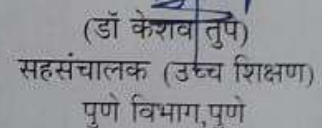 (डॉ केशव तुपे)
सहसंचालक (उच्च शिक्षण)
पुणे विभाग,पुणे